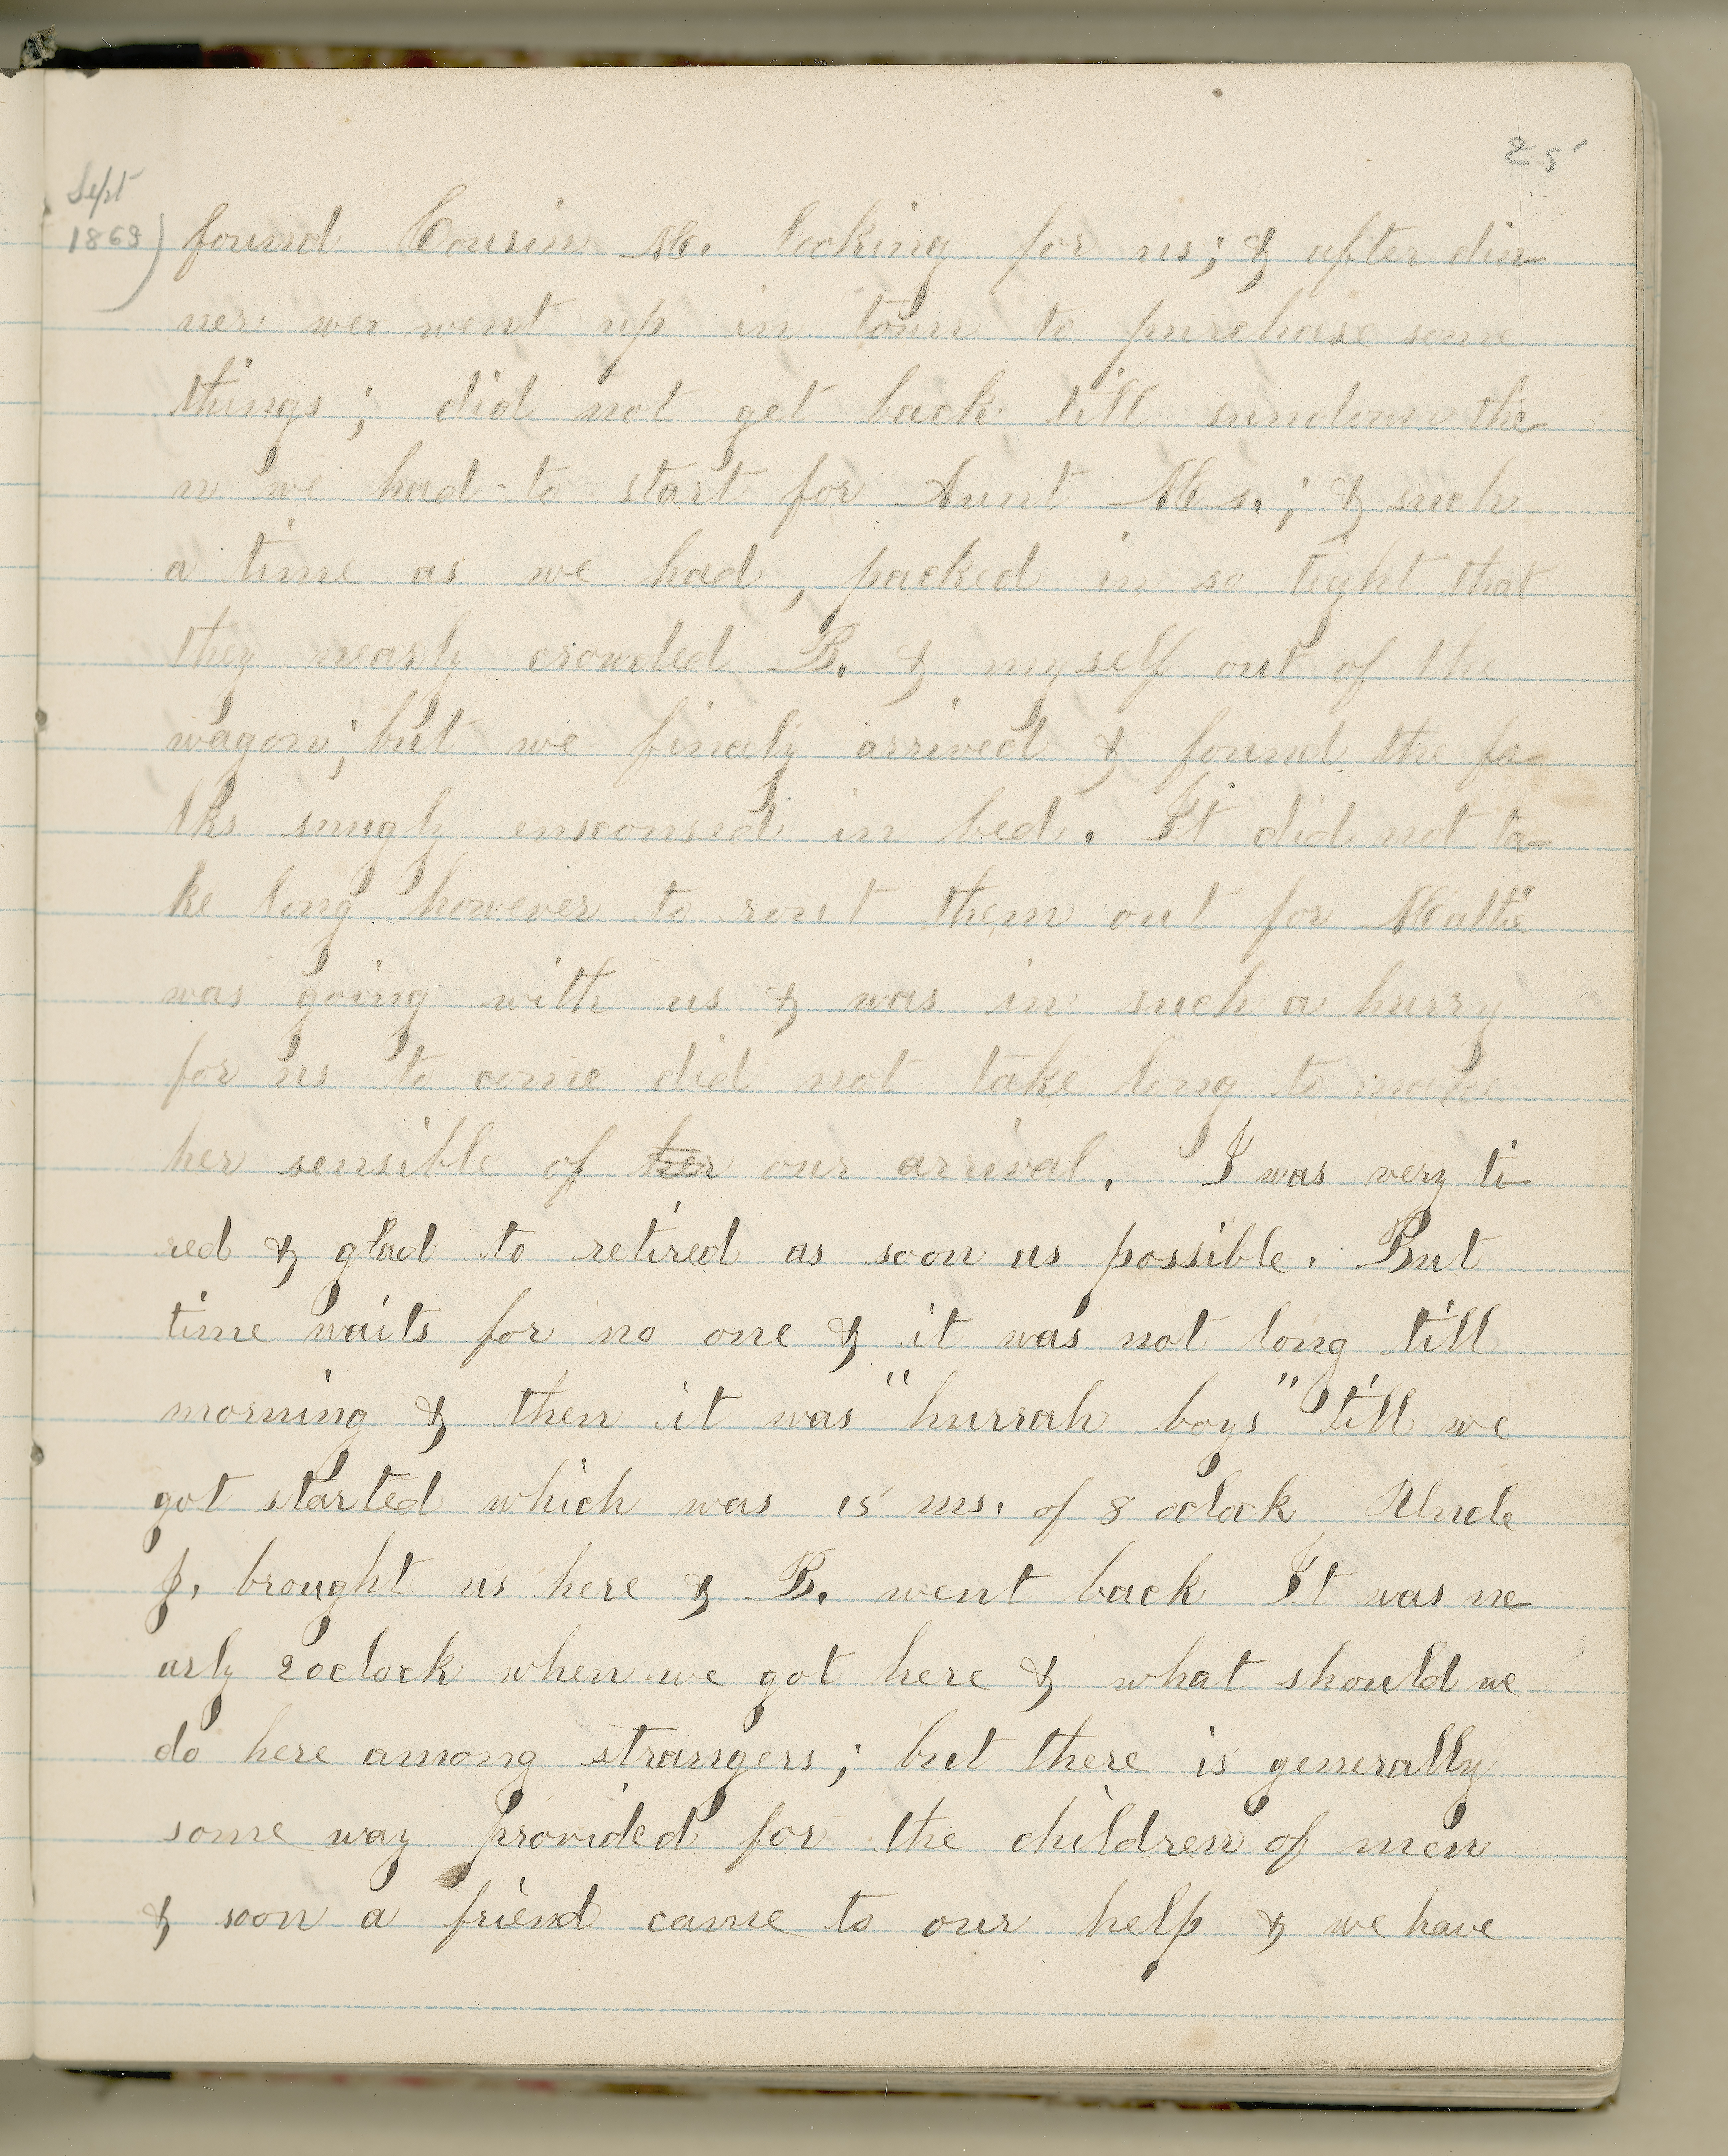 25
Sept
1869)
found Cousin M. looking for us; & after din-
ner we went up in town to purchase some
things; did not get back till sundown the-
n we had to start for Aunt M s.; & such
a time as we had, packed in so tight that
they nearly crowded B. & myself out of the
wagon; but we finaly arrived & found the fo-
lks snugly ensconsed in bed. It did not ta-
ke long however to rout them out for Mattie
was going with us & was in such a hurry
for us to come did not take long to make
her sensible of her our arrival. I was very ti-
red & glad to retired as soon as possible. But
time waits for no one & it was not long till
morning & then it was "hurrah boys" till we
got started which was 15 ms. of 8 oclock Uncle
J. brought us here & B. went back It was ne-
arly 2oclock when we got here & what should we
do here among strangers; but there is generally
some way provided for the children of men
& soon a friend came to our help & we have